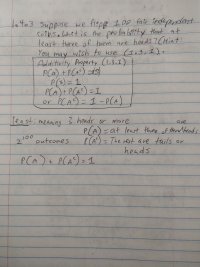 1.4.3 Suppose we flip 100 fair independent
coins. What is the probability that at
least three of them are heads? (Hint:
You may wish to use (1.3.1).
Additivity Property (1.3.1)
P(A) + P(Aᶜ) = P(S)
P(S) = 1
P(A) + P(Aᶜ) = 1
or P(Aᶜ) = 1 - P(A)
least meaning 3 heads or more are
P(A) = at least three of them heads
2¹⁰⁰ outcomes P(Aᶜ) = The rest are tails or
heads
P(A) + P(Aᶜ) = 1